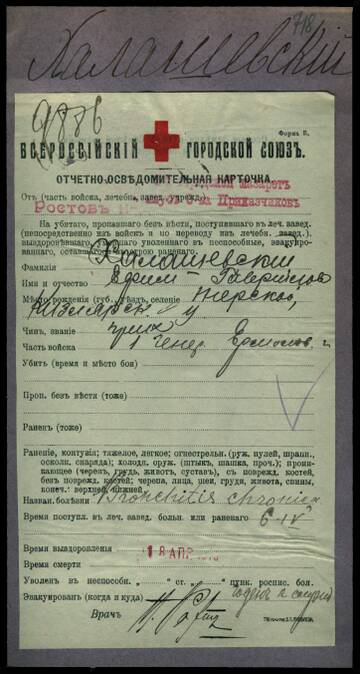 718
Халашевский
9886
Форма В.
ВСЕРОССІЙСКІЙ ГОРОДСКОЙ СОЮЗЪ.
ОТЧЕТНО-ОСВѢДОМИТЕЛЬНАЯ КАРТОЧКА
Отъ (часть войска, лечебн. завед. учрежд.
лазаретъ
Ростовъ Н-Д. Клуба Приказчиковъ
На убитаго, пропавшаго безъ вѣсти, поступившаго въ леч. завед.
(непосредственно изъ войскъ или по переводу изъ лечебн. завед.),
выздоровѣвшаго, умершаго, уволеннаго въ неспособные, эвакуиро-
ваннаго, оставшагося въ строю раненаго.
Фамилія Халашевский
Имя и отчество Ефимъ
Мѣсто рожденія (губ., уѣздъ, селеніе Терской,
Кизлярск. у
Чин, званіе
Часть войска 1 Генер. Ермолов.
Убитъ (время и мѣсто боя)
Проп. безъ вѣсти (тоже)
Раненъ (тоже)
Раненіе, контузія: тяжелое, легкое; огнестрѣльн. (руж. пулей, шрапн.,
осколк. снаряда); холодн. оруж. (штыкъ, шашка, проч.); прони-
кающее (черепъ, грудь, животъ, суставъ), съ поврежд. костей,
безъ поврежд. костей; черепа, лица, шеи, груди, живота, спины,
конеч.: верхней, нижней
Назван. болѣзни Bronchitis chronica
Время поступл. въ леч. завед. больн. или раненаго 6-IV
Время выздоровленія 18 АПР
Время смерти
Уволенъ въ неспособн. „ “ ст. „ “ пунк. роспис. бол.
Эвакуированъ (когда и куда) годенъ к
Врачъ